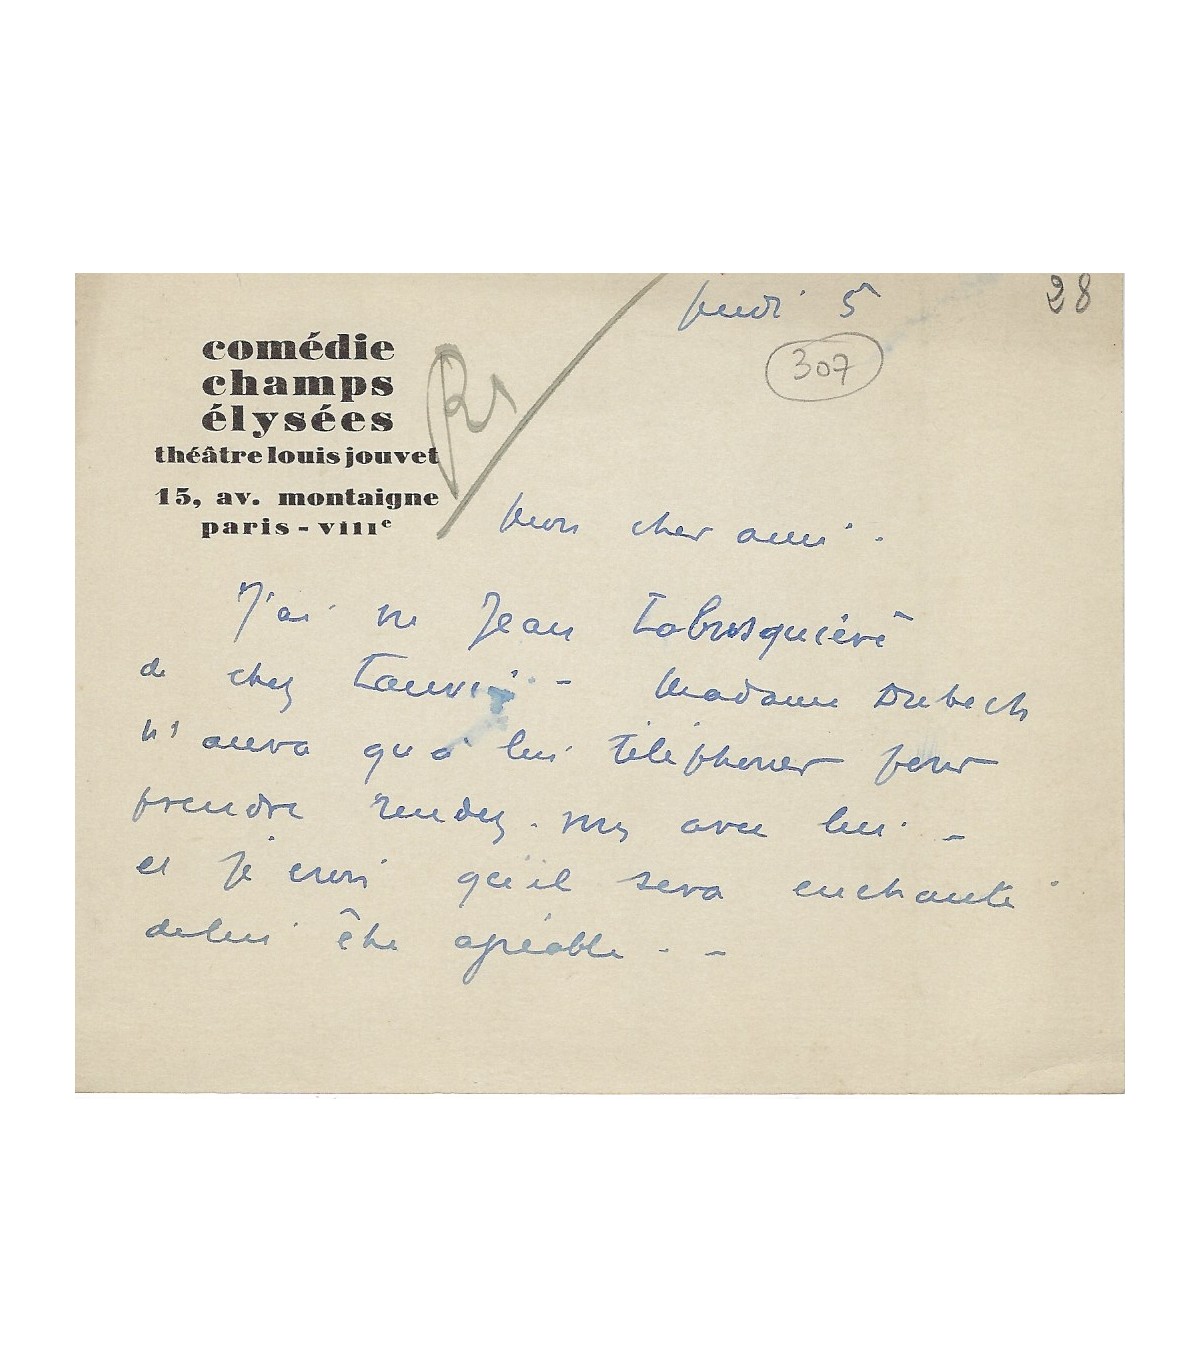 jeudi 5
28
307
comédie
champs
élysées
théâtre louis jouvet
15, av. montaigne
paris - VIIIe
Mon cher ami.
J'ai vu Jean Labusquière
de chez Lanvin - Madame Dubech
n'aura qu'à lui téléphoner pour
prendre rendez-vous avec lui -
et je crois qu'il sera enchanté
de lui être agréable. -